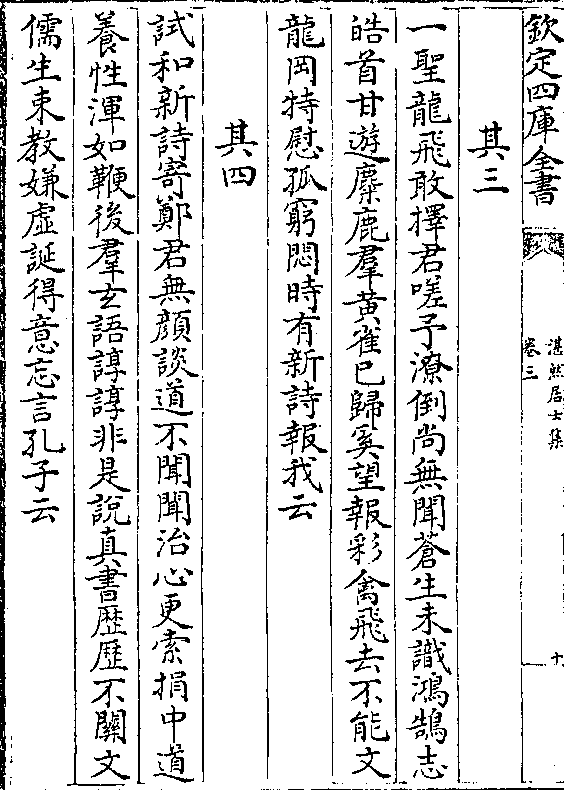 欽定四庫全書
湛然居士集
卷三
十
其三
一聖龍飛敢擇君嗟予潦倒尚無聞蒼生未識鴻鵠志
皓首甘遊麋鹿羣黄雀已歸奚望報彩禽飛去不能文
龍岡特慰孤窮悶時有新詩報我云
其四
試和新詩寄鄭君無顔談道不聞聞治心更索損中道
養性渾如鞭後羣玄語諄諄非是說真書歴歴不關文
儒生束教嫌虚誕得意忘言孔子云